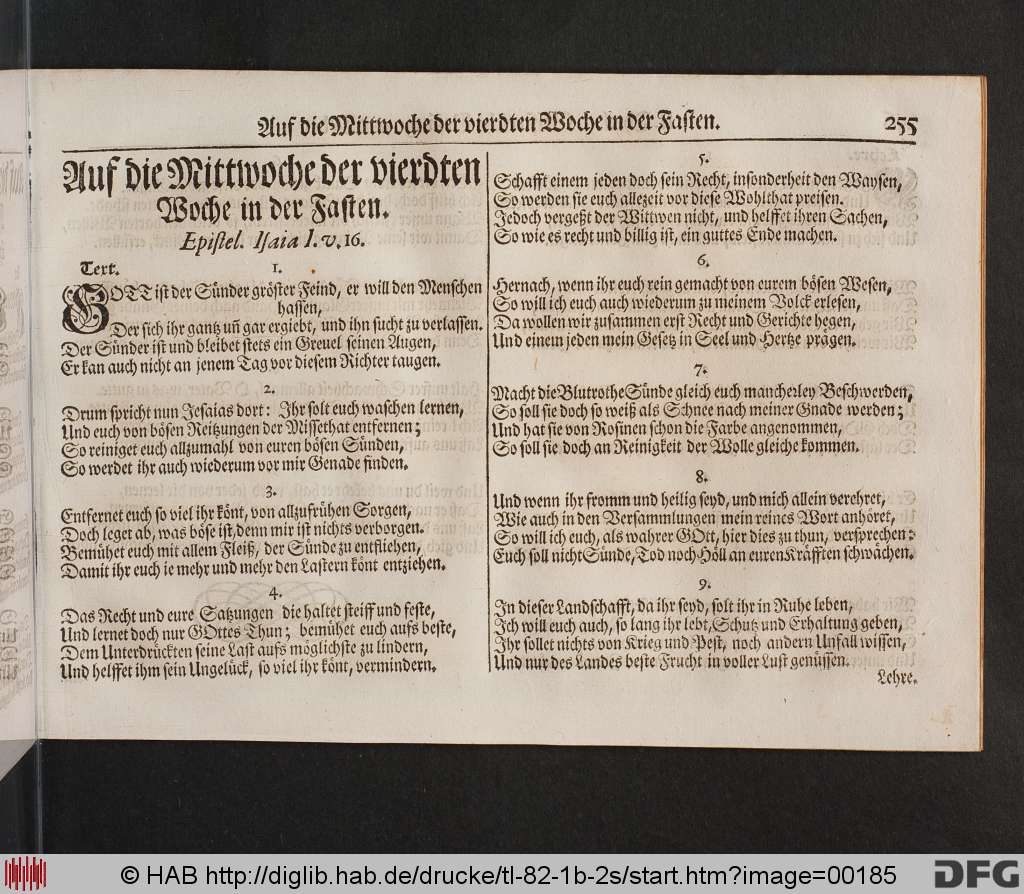 Auf die Mittwoche der vierdten Woche in der Fasten.
255
Auf die Mittwoche der vierdten
Woche in der Fasten.
Epistel. Isaia I. v. 16.
Text.
1.
GOTT ist der Sünder gröster Feind, er will den Menschen
hassen,
Der sich ihr gantz uñ gar ergiebt, und ihn sucht zu verlassen.
Der Sünder ist und bleibet stets ein Greuel seinen Augen,
Er kan auch nicht an jenem Tag vor diesem Richter taugen.
2.
Drum spricht nun Jesaias dort: Ihr solt euch waschen lernen,
Und euch von bösen Reitzungen der Missethat entfernen;
So reiniget euch allzumahl von euren bösen Sünden,
So werdet ihr auch wiederum vor mir Genade finden.
3.
Entfernet euch so viel ihr könt, von allzufrühen Sorgen,
Doch leget ab, was böse ist, denn mir ist nichts verborgen.
Bemühet euch mit allem Fleiß, der Sünde zu entfliehen,
Damit ihr euch ie mehr und mehr den Lastern könt entziehen.
4.
Das Recht und eure Satzungen die haltet steiff und feste,
Und lernet doch nur GOttes Thun; bemühet euch aufs beste,
Dem Unterdrückten seine Last aufs möglichste zu lindern,
Und helffet ihm sein Ungelück, so viel ihr könt, vermindern.
5.
Schafft einem jeden doch sein Recht, insonderheit den Waysen,
So werden sie euch allezeit vor diese Wohlthat preisen.
Jedoch vergeßt der Wittwen nicht, und helffet ihren Sachen,
So wie es recht und billig ist, ein guttes Ende machen.
6.
Hernach, wenn ihr euch rein gemacht von eurem bösen Wesen,
So will ich euch auch wiederum zu meinem Volck erlesen,
Da wollen wir zusammen erst Recht und Gerichte hegen,
Und einem jeden mein Gesetz in Seel und Hertze prägen.
7.
Macht die Blutrothe Sünde gleich euch mancherley Beschwerden,
So soll sie doch so weiß als Schnee nach meiner Gnade werden;
Und hat sie von Rosinen schon die Farbe angenommen,
So soll sie doch an Reinigkeit der Wolle gleiche kommen.
8.
Und wenn ihr fromm und heilig seyd, und mich allein verehret,
Wie auch in den Versammlungen mein reines Wort anhöret,
So will ich euch, als wahrer GOtt, hier dies zu thun, versprechen:
Euch soll nicht Sünde, Tod noch Höll an euren Kräfften schwächen.
9.
In dieser Landschafft, da ihr seyd, solt ihr in Ruhe leben,
Ich will euch auch, so lang ihr lebt, Schutz und Erhaltung geben,
Ihr sollet nichts von Krieg und Pest, noch andern Unfall wissen,
Und nur des Landes beste Frucht in voller Lust genüssen.
Lehre.
© HAB http://diglib.hab.de/drucke/tl-82-1b-2s/start.htm?image=00185
DFG